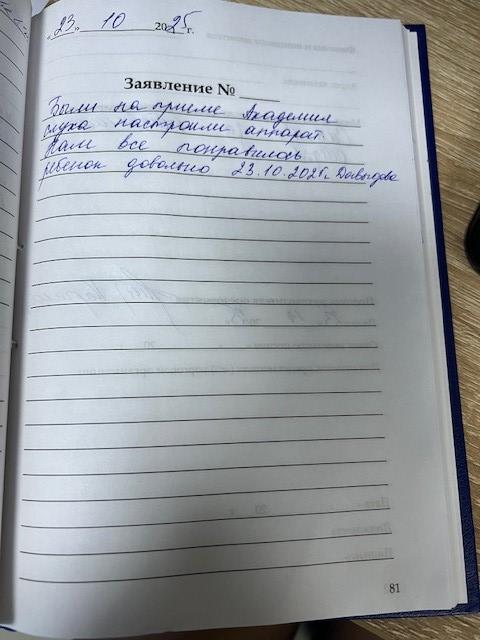 «23» 10 2025 г.
Заявление №
Были на приеме Академия
слуха настроили аппарат.
Нам все понравилось
ребенок довольно 23.10.2025г. Давыдова
81